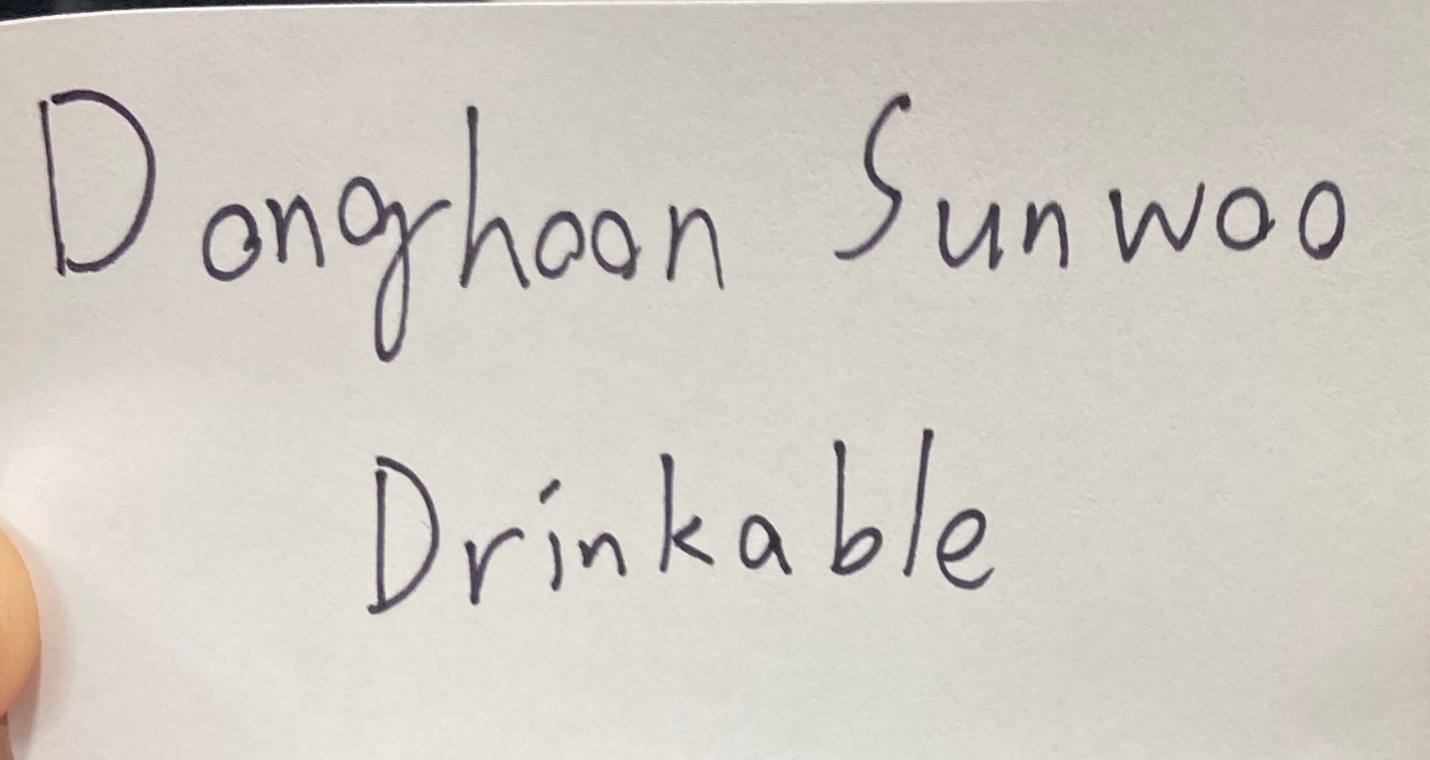 Donghoon Sunwoo
Drinkable